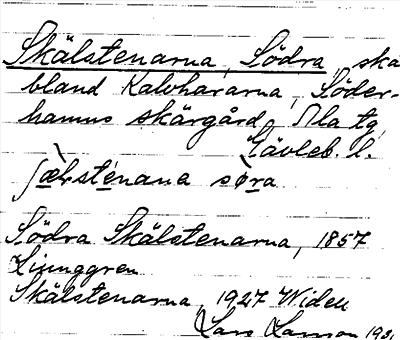 Skälstenarna, Södra, skä
bland Kalvhararna, Söder-
hamns skärgård, Ala tg
Gävleb. l.
ʃæ̀lsténana sø̀ra
Södra Skälstenarna, 1857
Ljunggren
Skälstenarna, 1927 Widell
Lars Larsson 1931